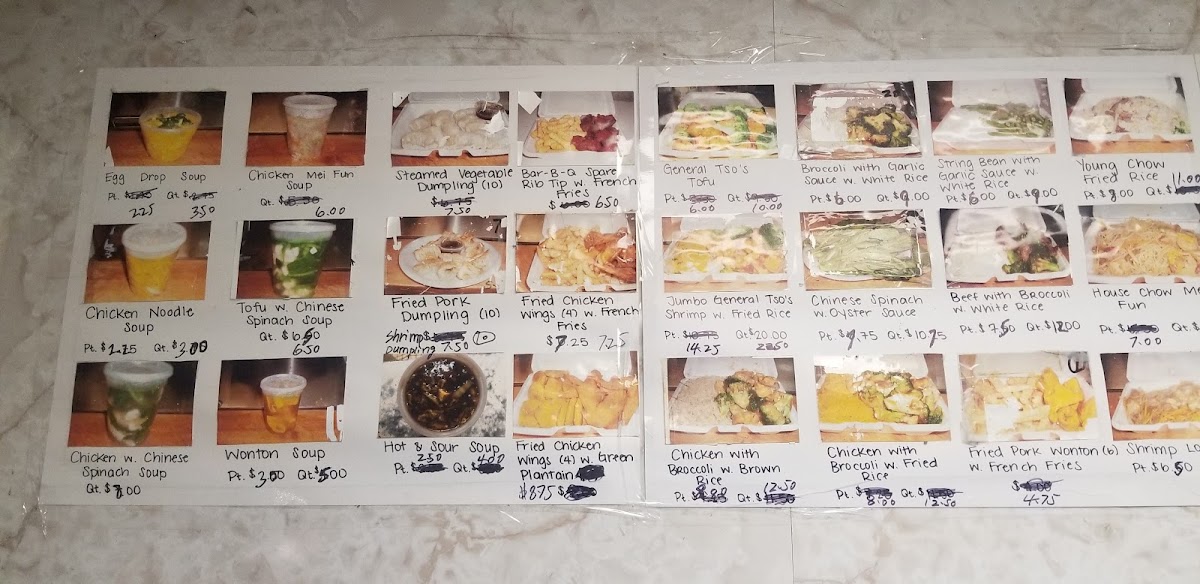 Egg Drop Soup
Pt. Qt.
2.25 3.50
Chicken Mei Fun
Soup
Qt.
6.00
Steamed Vegetable
Dumpling (10)
$6.75
7.50
Bar-B-Q Spare
Rib Tip w. French
Fries
$6.00 6.50
General Tso's
Tofu
Pt. Qt.
6.00 10.00
Broccoli with Garlic
Sauce w. White Rice
Pt. $6.00 Qt. $9.00
String Bean with
Garlic Sauce w.
White Rice
Pt. $6.00 Qt. $9.00
Young Chow
Fried Rice
11.00
Pt. $8.00 Qt. $
Chicken Noodle
Soup
Pt. $2.25 Qt. $3.00
Tofu w. Chinese
Spinach Soup
Qt. $6.50
6.50
Fried Pork
Dumpling (10)
Shrimp $ 10
Dumpling 7.50
Fried Chicken
Wings (4) w. French
Fries
$7.25 7.25
Jumbo General Tso's
Shrimp w. Fried Rice
Pt. Qt. $20.00
14.25 22.50
Chinese Spinach
w. Oyster Sauce
Pt. $7.75 Qt. $10.75
Beef with Broccoli
w. White Rice
Pt. $7.50 Qt. $12.00
House Chow Me
Fun
Pt. Qt. $
7.00
Chicken w. Chinese
Spinach Soup
Qt. $7.00
Wonton Soup
Pt. $3.00 Qt. $5.00
Hot & Sour Soup
2.50 4.00
Pt. Qt.
Fried Chicken
Wings (4) w. Green
Plantain
$8.75 $
Chicken with
Broccoli w. Brown
Rice 12.50
Pt. Qt.
Chicken with
Broccoli w. Fried
Rice
Pt. Qt.
8.00 12.50
Fried Pork Wonton (6)
w. French Fries
$4.00
4.75
Shrimp Lo
Pt. $6.50